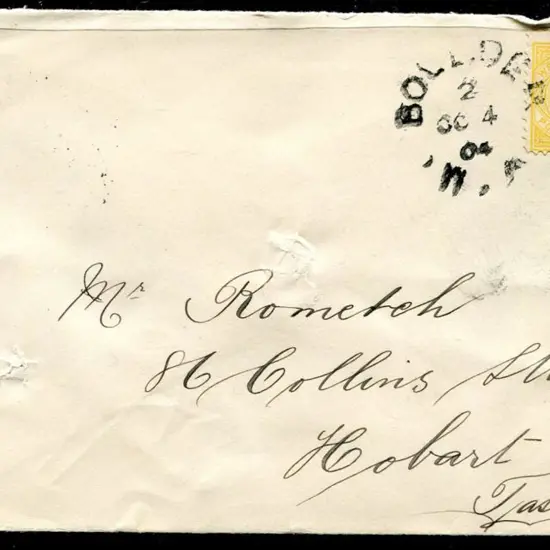 BOULDER
2
OC 4
04
W.A
Mr Rometch
86 Collins St
Hobart
Tas